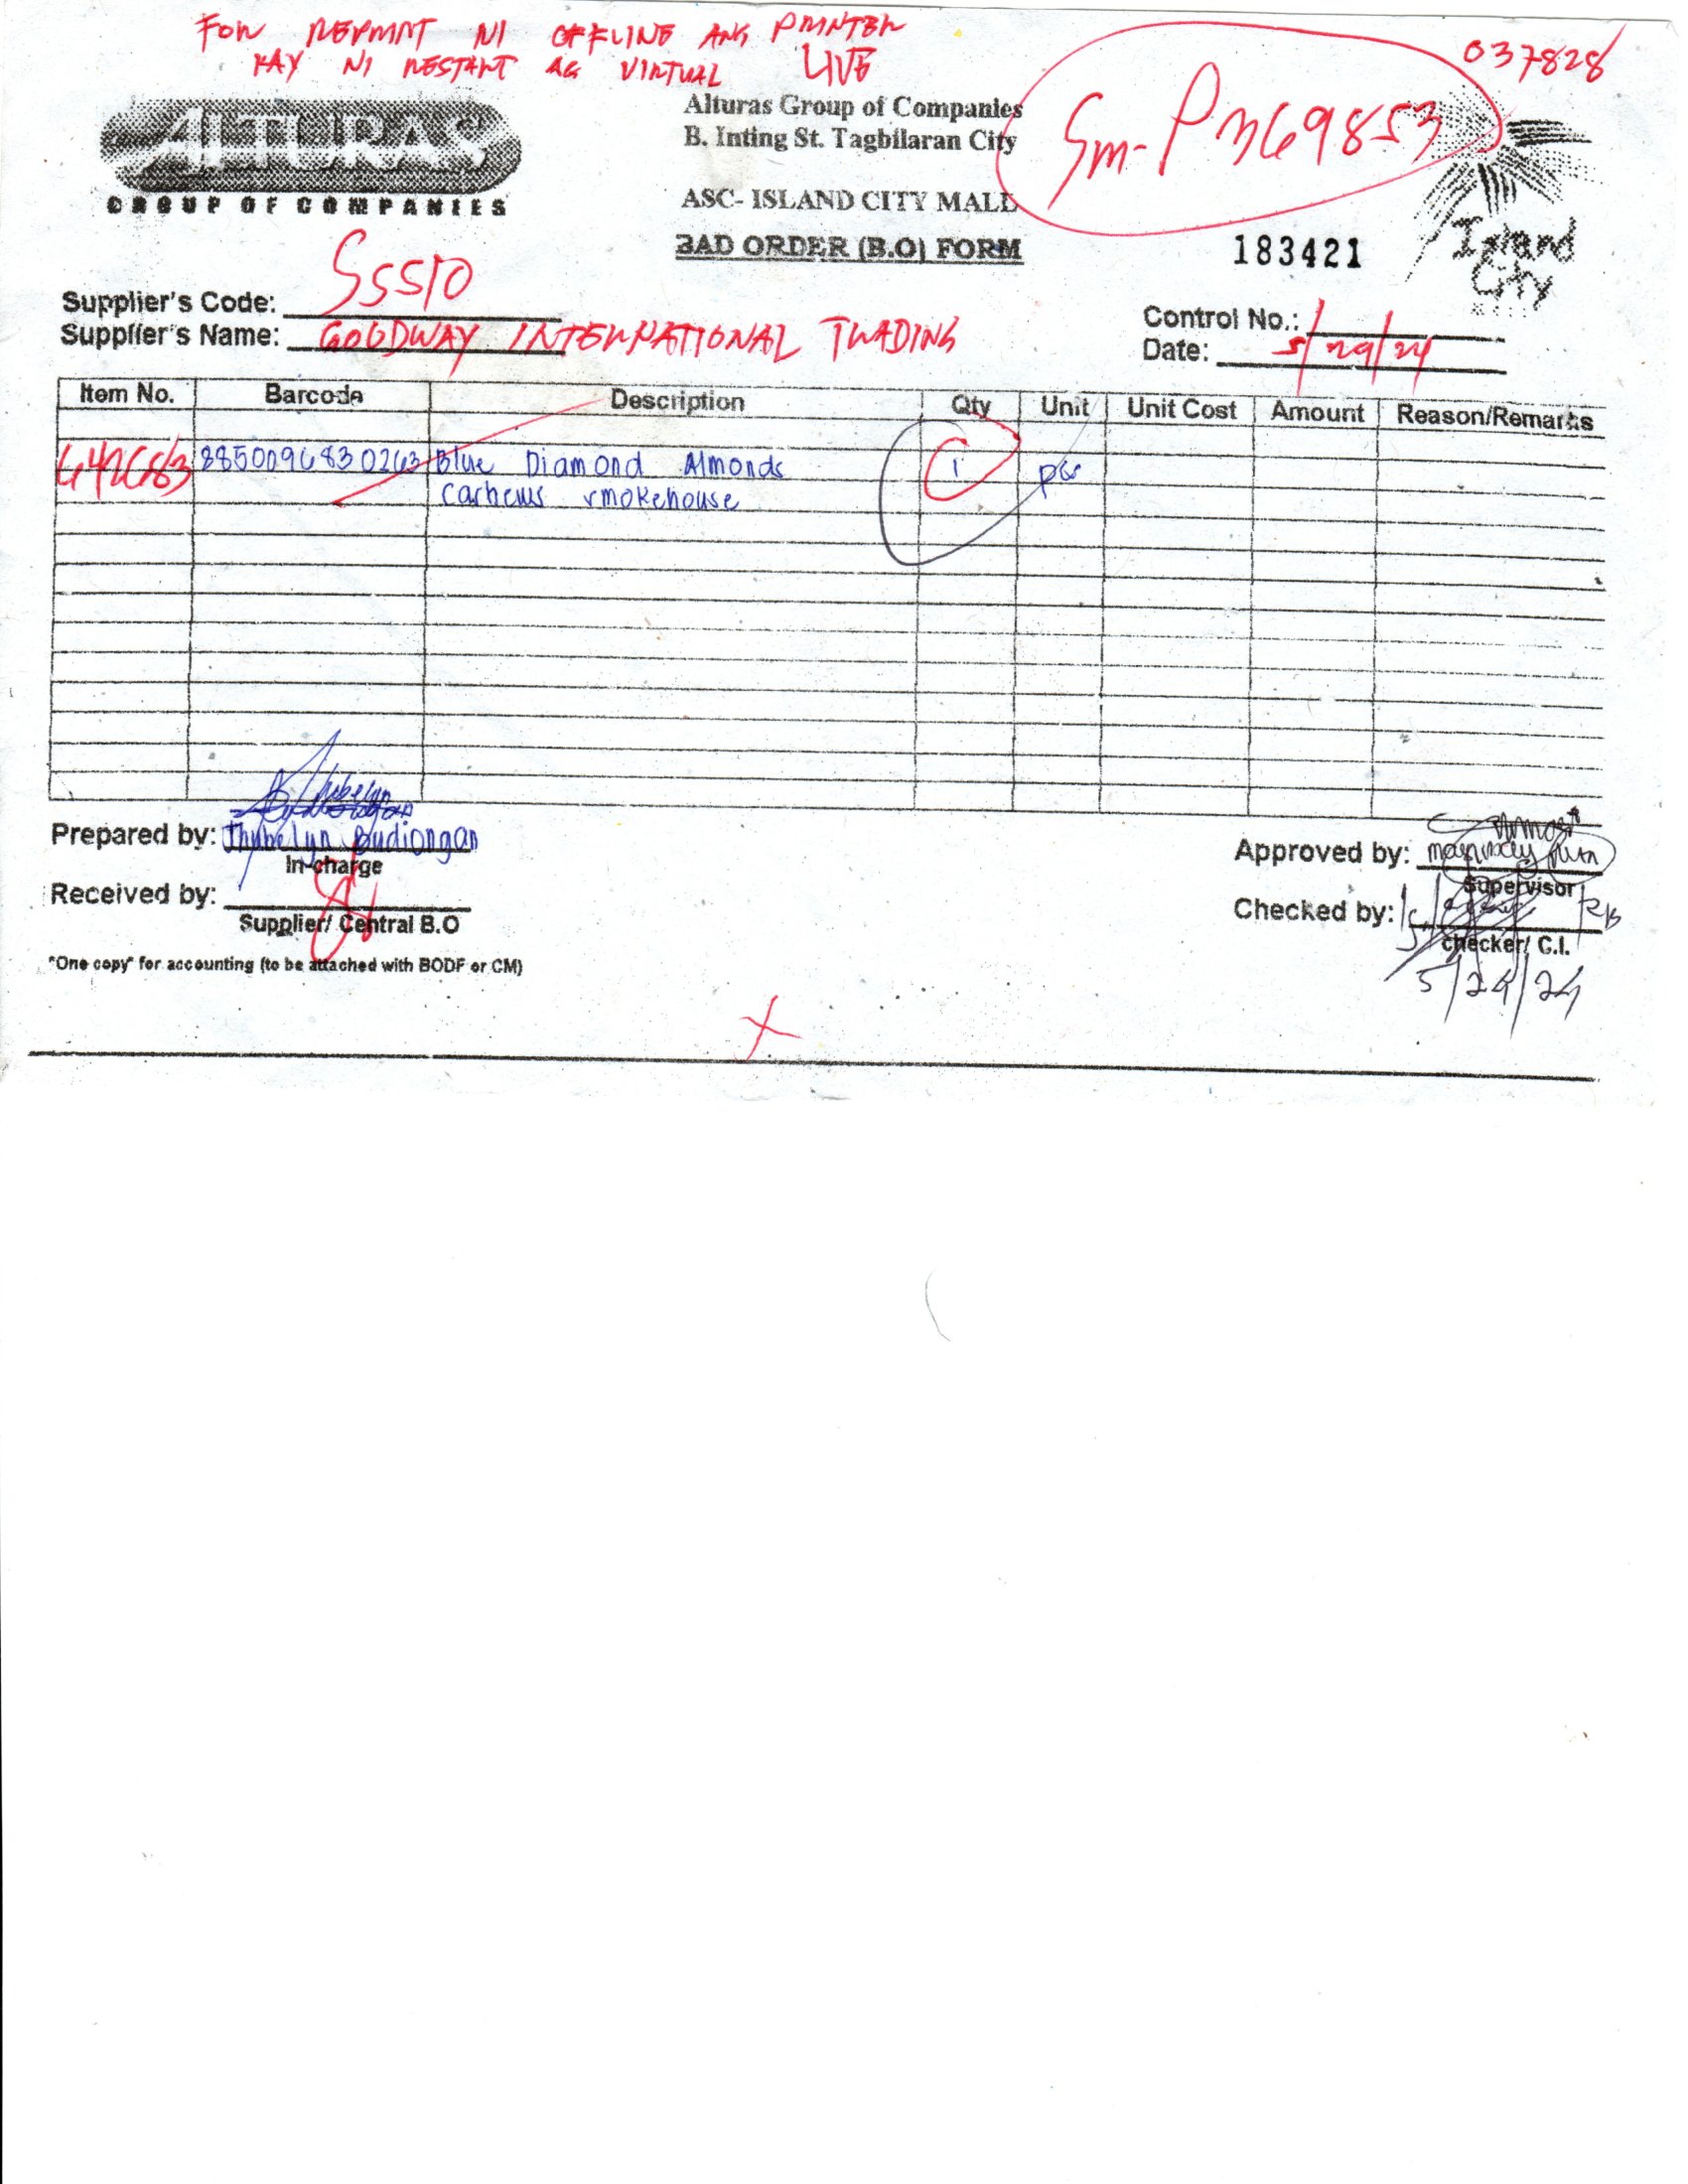 FOR REPRINT NI OFFLINE ANG PRINTER
KAY NI RESTART AG VIRTUAL LIVE
037828
Sm-P369853
ALTURAS
GROUP OF COMPANIES
Alturas Group of Companies
B. Inting St. Tagbilaran City
ASC- ISLAND CITY MALL
BAD ORDER (B.O) FORM
183421
Island
City
Supplier's Code: S5510
Supplier's Name: GOODWAY INTERNATIONAL TRADING
Control No.:
Date: 5/29/24
Item No. Barcode Description Qty Unit Unit Cost Amount Reason/Remarks
642683 8850096830263 Blue Diamond Almonds 1 pcs
cashews smokehouse
Prepared by: Jhybelyn Budiongan
In-charge
Received by:
Supplier/ Central B.O
"One copy" for accounting (to be attached with BODF or CM)
Approved by:
Supervisor
Checked by:
checker/ C.I.
5/24/24